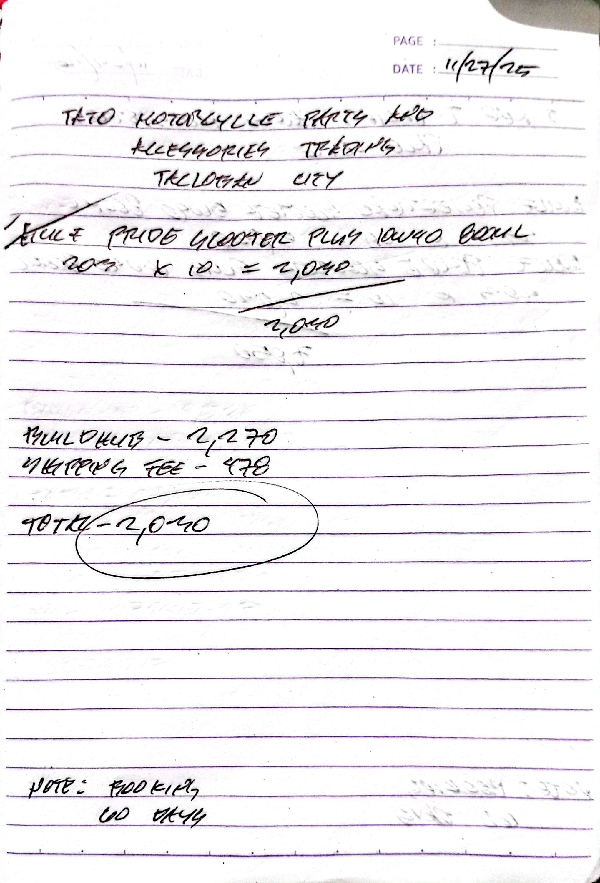 PAGE :
DATE : 11/27/25
TATO MOTORCYCLE PARTS AND
ACCESSORIES TRADING
TACLOBAN CITY
PRIDE SCOOTER PLUS 10W40 800ML
204 X 10 = 2,040
2,040
BUILDHUB - 2,270
SHIPPING FEE - 478
TOTAL - 2,040
NOTE: BOOKING
60 DAYS